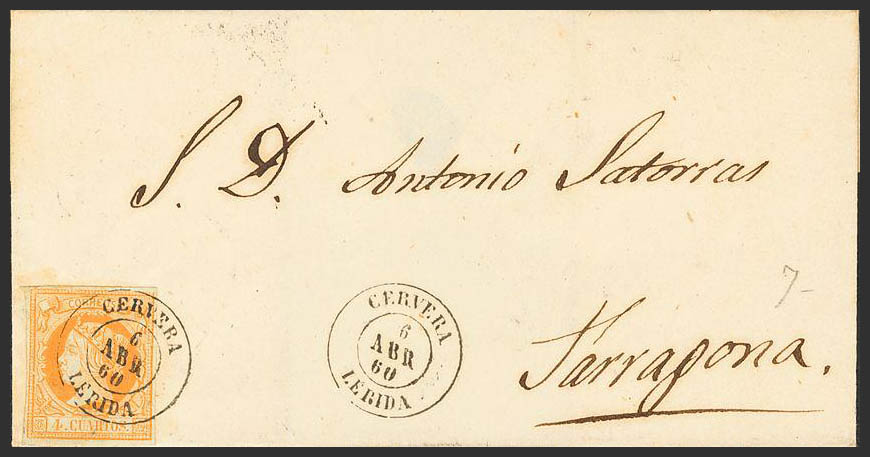 S. D. Antonio Satorras
Tarragona.
7-
CORREOS
4 CUARTOS.
CERVERA
6
ABR
60
LERIDA
CERVERA
6
ABR
60
LERIDA